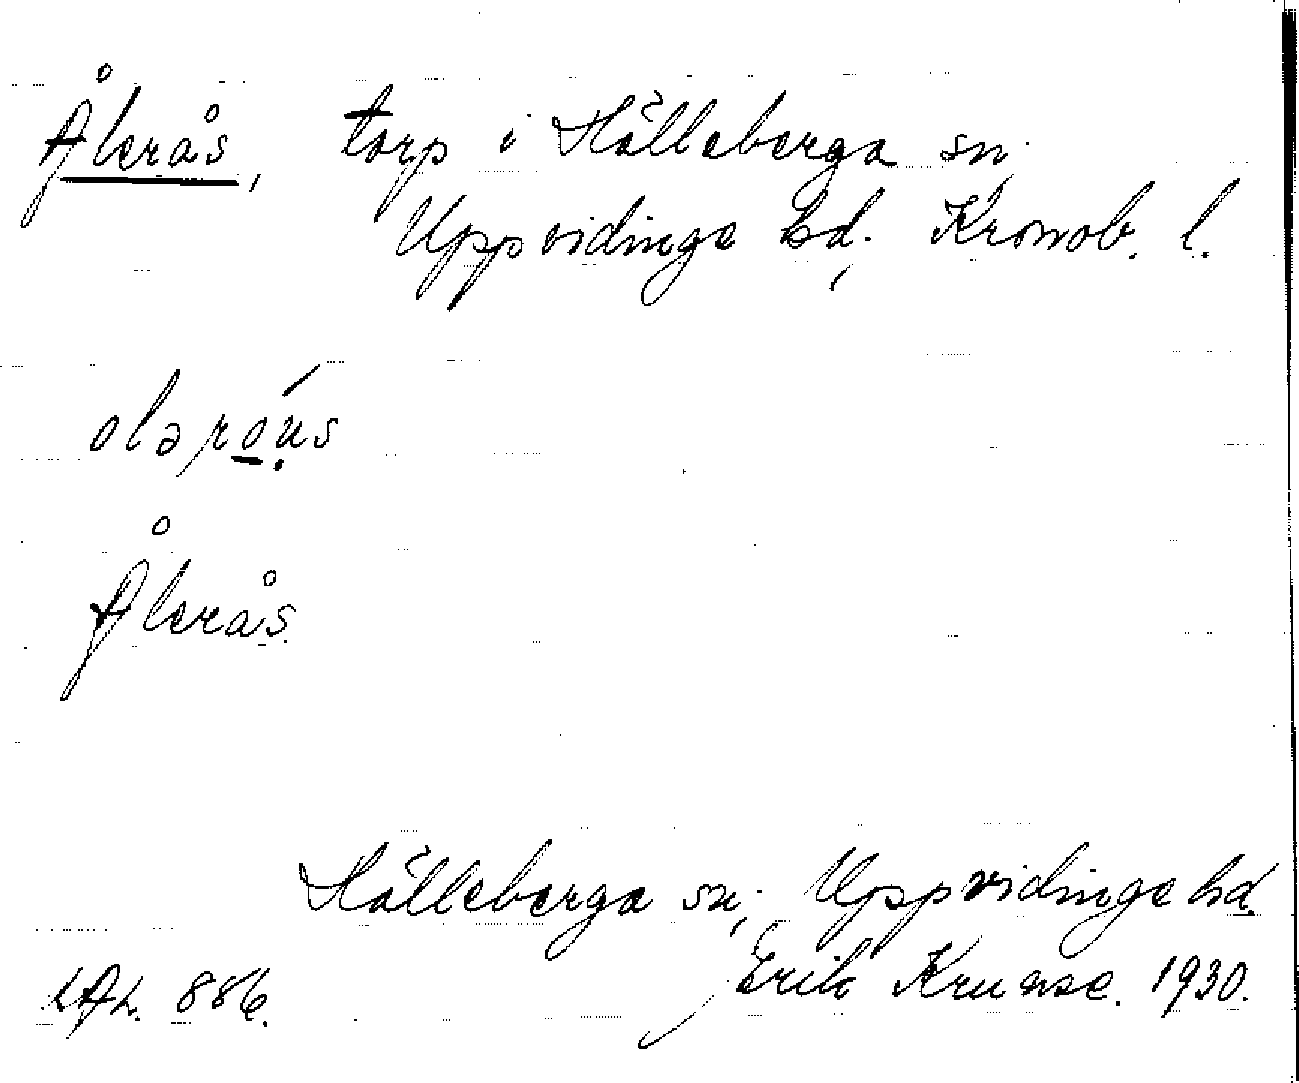 Ålerås, torp i Hälleberga sn.
Uppvidinge hd. Kronob. l.
olərọ́us
Ålerås.
Hälleberga sn; Uppvidinge hd.
LAL. 886. Erik Kruuse. 1930.